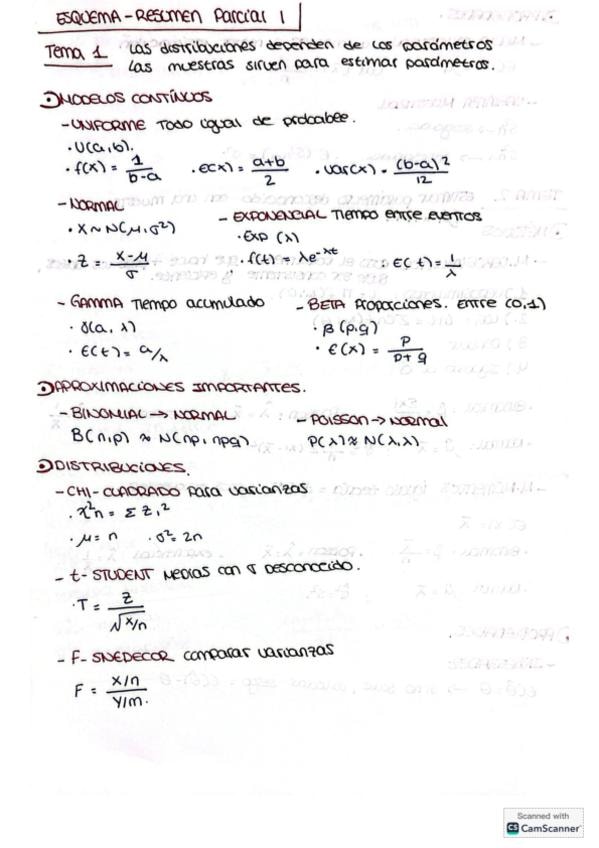 ESQUEMA-RESUMEN Parcial 1
Tema 1 Las distribuciones dependen de los parámetros
Las muestras sirven para estimar parámetros.
MODELOS CONTÍNUOS
- UNIFORME Todo igual de probable.
· U(a,b).
· f(x) = 1/b-a · E(x) = a+b/2 · Var(x) = (b-a)²/12
- NORMAL
· X ~ N(μ,σ²)
· Z = x-μ/σ
- EXPONENCIAL Tiempo entre eventos
· Exp (λ)
· f(t) = λe^-λt · E(t) = 1/λ
- GAMMA Tiempo acumulado
· γ(a, λ)
· E(t) = a/λ
- BETA Proporciones. entre (0,1)
· β (p,q)
· E(x) = p/p+q
APROXIMACIONES IMPORTANTES.
- BINOMIAL → NORMAL
B(n,p) ≈ N(np, npq)
- POISSON → Normal
P(λ) ≈ N(λ,λ)
DISTRIBUCIONES.
- CHI-CUADRADO para varianzas
· χ²n = Σ Zi²
· μ = n · σ² = 2n
- t-STUDENT Medias con σ desconocido.
· T = Z/√x/n
- F-SNEDECOR comparar varianzas
F = X/n / Y/m.
Scanned with
CS CamScanner